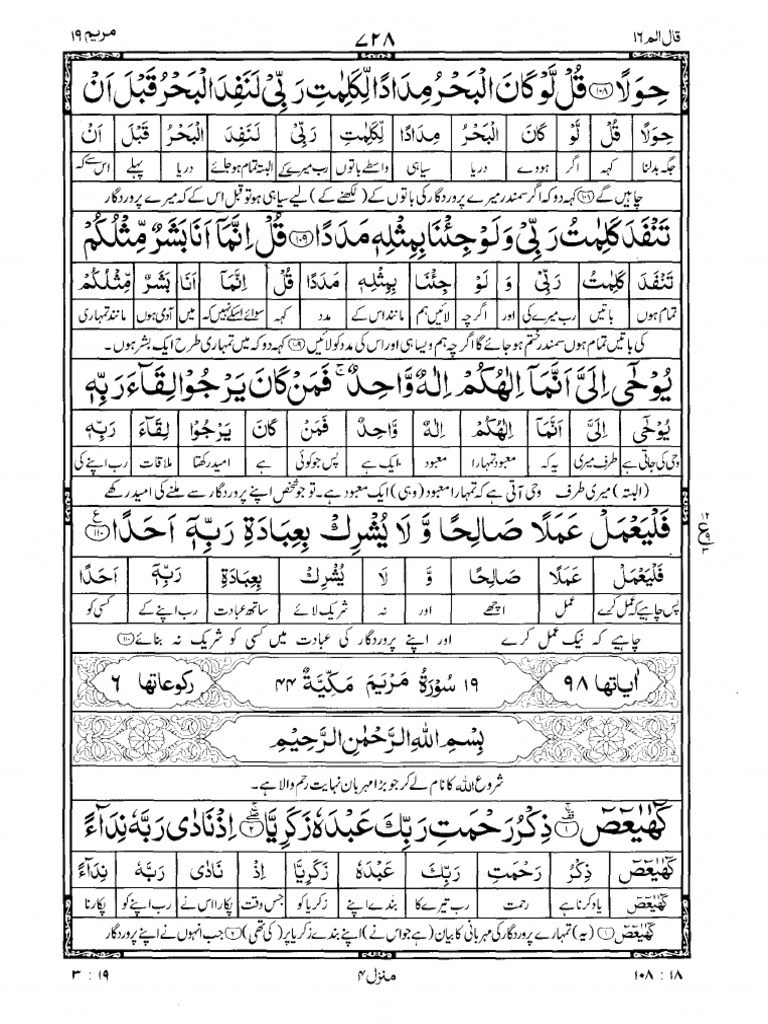 قال الم ۱۶ ۷۲۸ مریم ۱۹
حِوَلًا ۝۱۰۸ قُلْ لَّوْ كَانَ الْبَحْرُ مِدَادًا لِّكَلِمٰتِ رَبِّیْ لَنَفِدَ الْبَحْرُ قَبْلَ اَنْ
حِوَلًا قُلْ لَّوْ كَانَ الْبَحْرُ مِدَادًا لِّكَلِمٰتِ رَبِّیْ لَنَفِدَ الْبَحْرُ قَبْلَ اَنْ
جگہ بدلنا کہہ اگر ہووے دریا سیاہی واسطے باتوں رب میرے کے البتہ تمام ہو جائے دریا پہلے اس سے کہ
چاہیں گے ۝۱۰۸ کہہ دو کہ اگر سمندر میرے پروردگار کی باتوں کے (لکھنے کے) لیے سیاہی ہو تو قبل اس کے کہ میرے پروردگار
تَنْفَدَ كَلِمٰتُ رَبِّیْ وَلَوْ جِئْنَا بِمِثْلِهٖ مَدَدًا ۝۱۰۹ قُلْ اِنَّمَاۤ اَنَا بَشَرٌ مِّثْلُكُمْ
تَنْفَدَ كَلِمٰتُ رَبِّیْ وَ لَوْ جِئْنَا بِمِثْلِهٖ مَدَدًا قُلْ اِنَّمَاۤ اَنَا بَشَرٌ مِّثْلُكُمْ
تمام ہوں باتیں رب میرے کی اور اگرچہ لائیں ہم مانند اس کے مدد کہہ سوائے اسکے نہیں کہ میں آدمی ہوں مانند تمہاری
کی باتیں تمام ہوں سمندر ختم ہو جائے گا اگرچہ ہم ویسا ہی اور اس کی مدد کو لائیں ۝۱۰۹ کہہ دو کہ میں تمہاری طرح ایک بشر ہوں۔
یُوْحٰۤی اِلَیَّ اَنَّمَاۤ اِلٰهُكُمْ اِلٰهٌ وَّاحِدٌ ۚ فَمَنْ كَانَ یَرْجُوْا لِقَآءَ رَبِّهٖ
یُوْحٰۤی اِلَیَّ اَنَّمَاۤ اِلٰهُكُمْ اِلٰهٌ وَّاحِدٌ فَمَنْ كَانَ یَرْجُوْا لِقَآءَ رَبِّهٖ
وحی کی جاتی ہے طرف میری یہ کہ معبود تمہارا معبود ایک ہے پس جو کوئی ہے امید رکھتا ملاقات رب اپنے کی
(البتہ) میری طرف وحی آتی ہے کہ تمہارا معبود (وہی) ایک معبود ہے۔ تو جو شخص اپنے پروردگار سے ملنے کی امید رکھے
فَلْیَعْمَلْ عَمَلًا صَالِحًا وَّ لَا یُشْرِكْ بِعِبَادَةِ رَبِّهٖۤ اَحَدًا ۝۱۱۰
فَلْیَعْمَلْ عَمَلًا صَالِحًا وَّ لَا یُشْرِكْ بِعِبَادَةِ رَبِّهٖۤ اَحَدًا
پس چاہیے کہ عمل کرے عمل اچھے اور نہ شریک لائے ساتھ عبادت رب اپنے کے کسی کو
چاہیے کہ نیک عمل کرے اور اپنے پروردگار کی عبادت میں کسی کو شریک نہ بنائے ۝۱۱۰
اٰیاتها ۹۸ ۱۹ سُوْرَةُ مَرْیَمَ مَكِّیَّةٌ ۴۴ ركوعاتها ۶
بِسْمِ اللهِ الرَّحْمٰنِ الرَّحِیْمِ
شروع اللہ کا نام لے کر جو بڑا مہربان نہایت رحم والا ہے۔
كٓهٰیٰعٓصٓ ۝۱ ذِكْرُ رَحْمَتِ رَبِّكَ عَبْدَهٗ زَكَرِیَّا ۝۲ اِذْ نَادٰی رَبَّهٗ نِدَآءً
كٓهٰیٰعٓصٓ ذِكْرُ رَحْمَتِ رَبِّكَ عَبْدَهٗ زَكَرِیَّا اِذْ نَادٰی رَبَّهٗ نِدَآءً
كٓهٰیٰعٓصٓ یاد کرنا ہے رحمت رب تیرے کا بندے اپنے زکریا کو جس وقت پکارا اس نے رب اپنے کو پکارنا
كٓهٰیٰعٓصٓ ۝۱ (یہ) تمہارے پروردگار کی مہربانی کا بیان (ہے جو اس نے) اپنے بندے زکریا پر (کی تھی) ۝۲ جب انہوں نے اپنے پروردگار
۱۸ : ۱۰۸ منزل ۴ ۱۹ : ۳